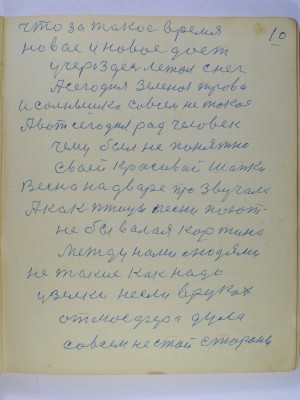 10
что за такое время
новае и новое дает
учера здесь летал снег
А сегодня зеленоя трова
и солнышка совсем не такое
А вот сегодня рад человек
чему был не понятно
своей красивай шапки
Весна на дваре про звучала
А как птицы песни поют-
не бывалая картина
между нами людями
не такие как надо
несли в руках
отмосфера дула
совсем не с той стороны